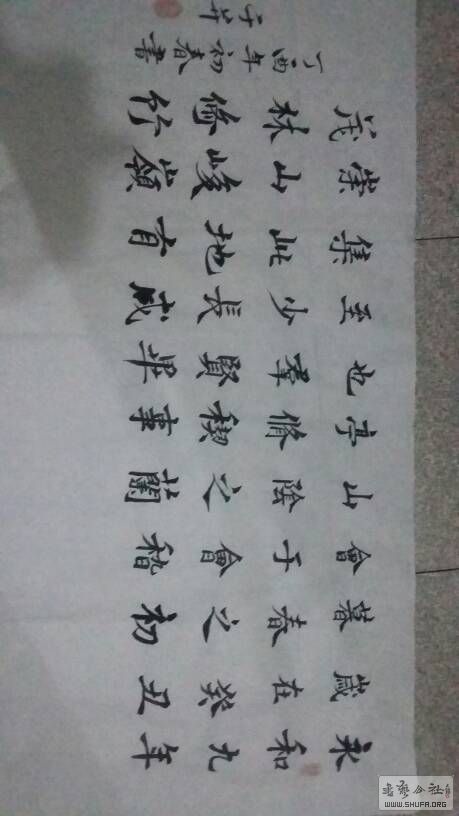 永和九年
歲在癸丑
暮春之初
會于會稽
山陰之蘭
亭脩禊事
也羣賢畢
至少長咸
集此地有
崇山峻嶺
茂林脩竹
丁酉年初春書
于
WWW.SHUFA.ORG